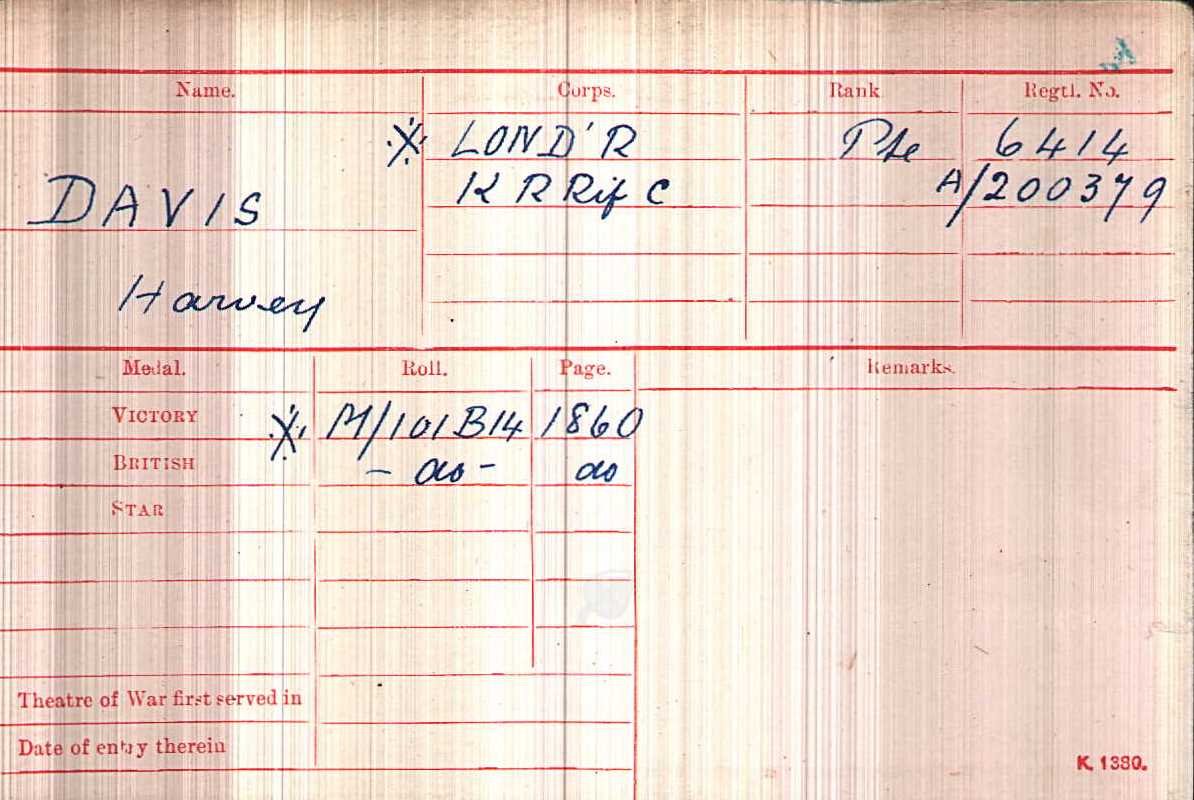 Name. Corps. Rank Regtl. No.
※ LOND'R Pte 6414
DAVIS K R Rif C A/200379
Harvey
Medal. Roll. Page. Remarks.
VICTORY ※ M/101B14 1860
BRITISH - do - do
STAR
Theatre of War first served in
Date of entry therein
K. 1380.